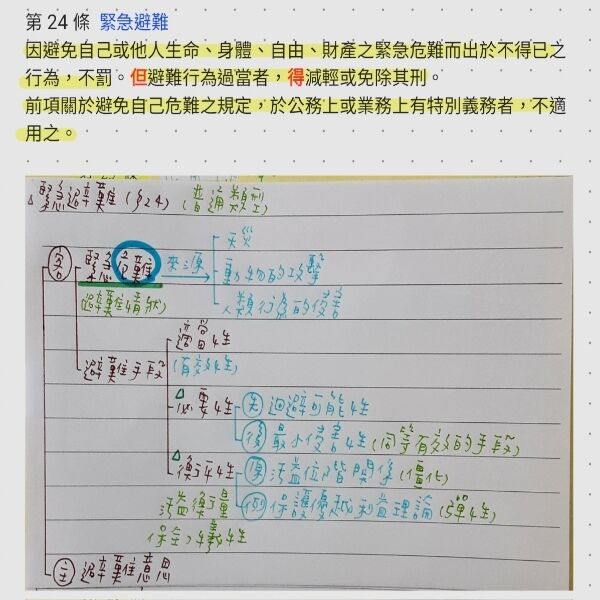 第 24 條 緊急避難
因避免自己或他人生命、身體、自由、財產之緊急危難而出於不得已之
行為，不罰。但避難行為過當者，得減輕或免除其刑。
前項關於避免自己危難之規定，於公務上或業務上有特別義務者，不適
用之。
△緊急避難(§24) (普通類型)
天災
客 緊急危難 來源 動物的攻擊
(避難情狀) 人類行為的侵害
適當性
避難手段 (有效性)
△必要性 先 迴避可能性
後 最小侵害性(同等有效的手段)
△衡平性 原 法益位階關係(僵化)
法益衡量 例 保護優越利益理論(彈性)
主 避難意思